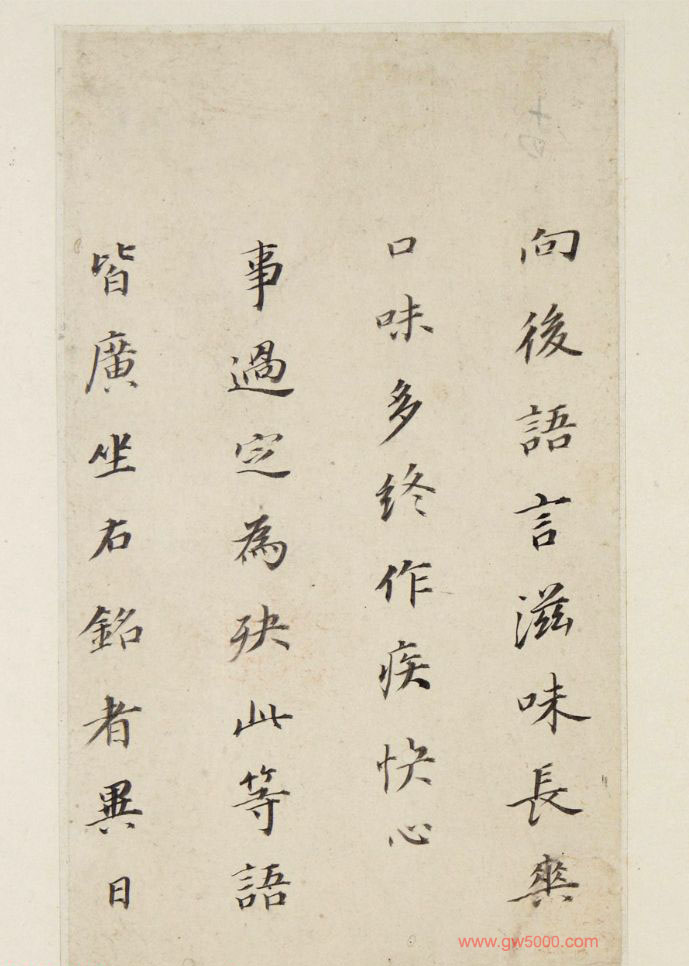 向後語言滋味長爽
口味多終作疾快心
事過定為殃此等語
皆廣坐右銘者異日
www.gw5000.com